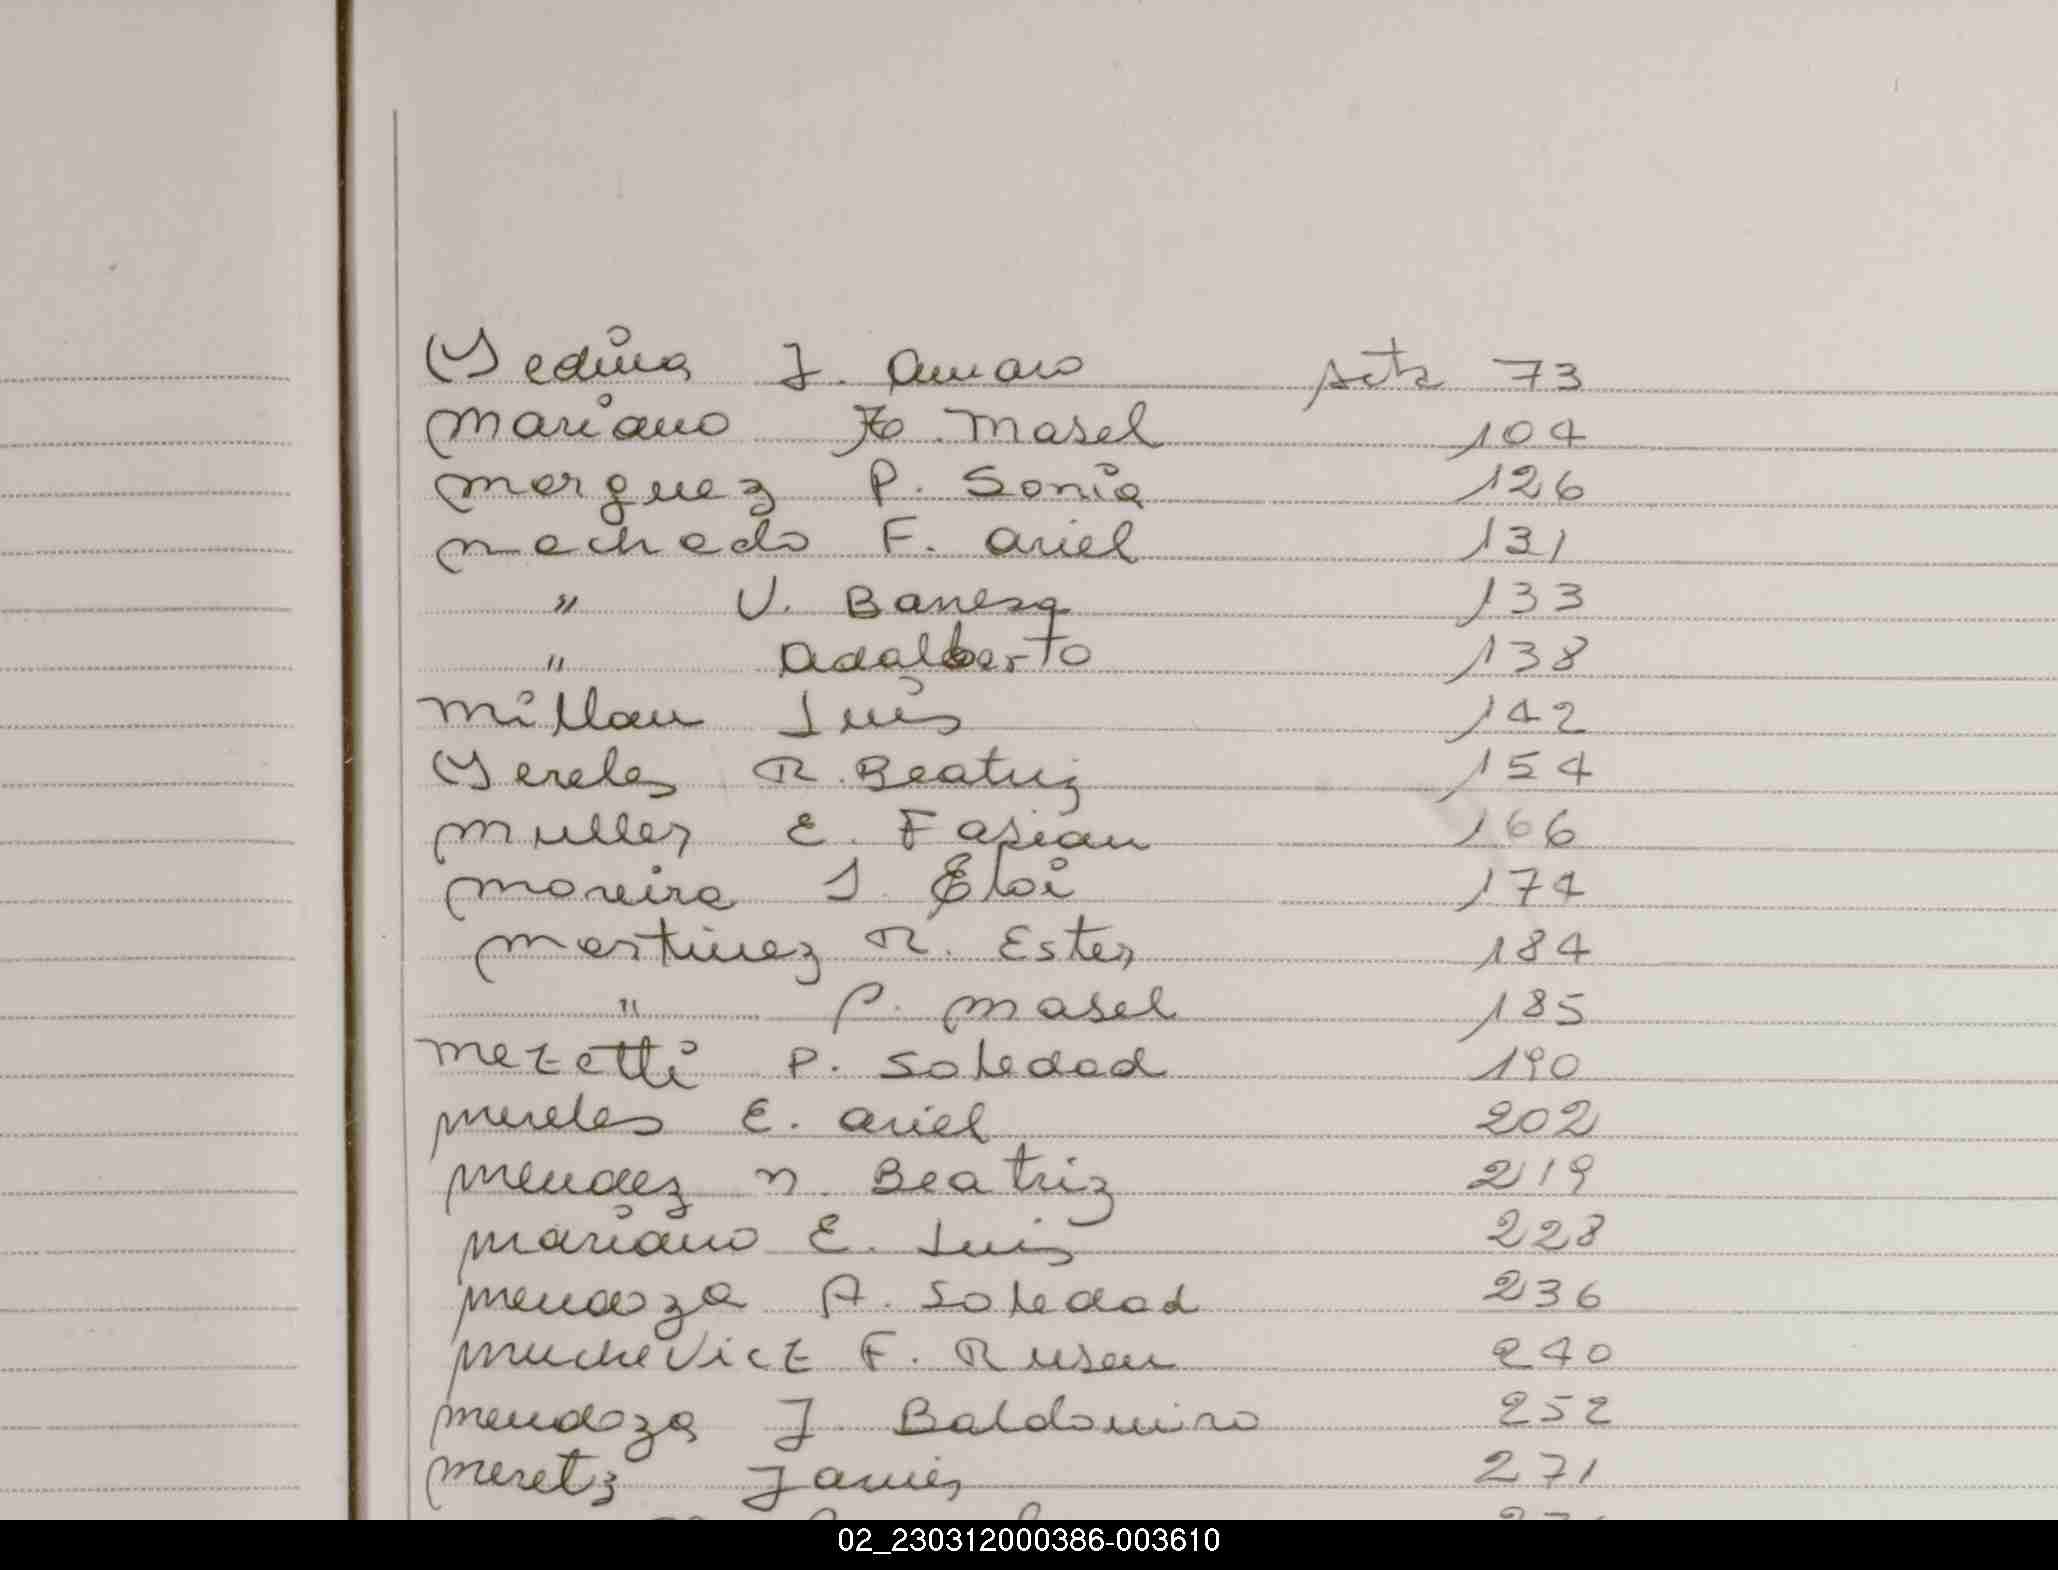 Medina J. Amaro Acta 73
Mariano H. Masel 104
Marquez P. Sonia 126
Machado F. Ariel 131
" V. Banesa 133
" Adalberto 138
Millan Luis 142
Mereles R. Beatriz 154
Muller E. Fasian 166
Moreira J. Eloi 174
Martinez R. Ester 184
" P. Masel 185
Mezetti P. Soledad 190
Mereles E. Ariel 202
Mendez N. Beatriz 219
Mariano E. Luis 228
Mendoza A. Soledad 236
Muchevict F. Rusen 240
Mendoza J. Baldomiro 252
Meretz Javier 271
02_230312000386-003610